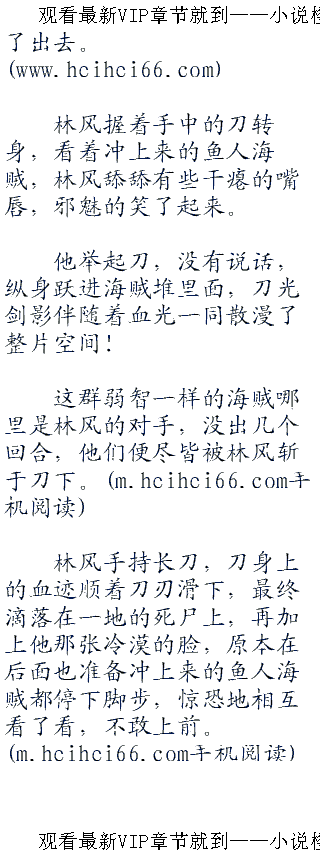 观看最新VIP章节就到——小说
了出去。
(www.hcihci66.com)
林风握着手中的刀转
身，看着冲上来的鱼人海
贼，林风舔舔有些干瘪的嘴
唇，邪魅的笑了起来。
他举起刀，没有说话，
纵身跃进海贼堆里面，刀光
剑影伴随着血光一同散漫了
整片空间！
这群弱智一样的海贼哪
里是林风的对手，没出几个
回合，他们便尽皆被林风斩
于刀下。(m.hcihci66.com手
机阅读)
林风手持长刀，刀身上
的血迹顺着刀刃滑下，最终
滴落在一地的死尸上，再加
上他那张冷漠的脸，原本在
后面也准备冲上来的鱼人海
贼都停下脚步，惊恐地相互
看了看，不敢上前。
(m.hcihci66.com手机阅读)
观看最新VIP章节就到——小说